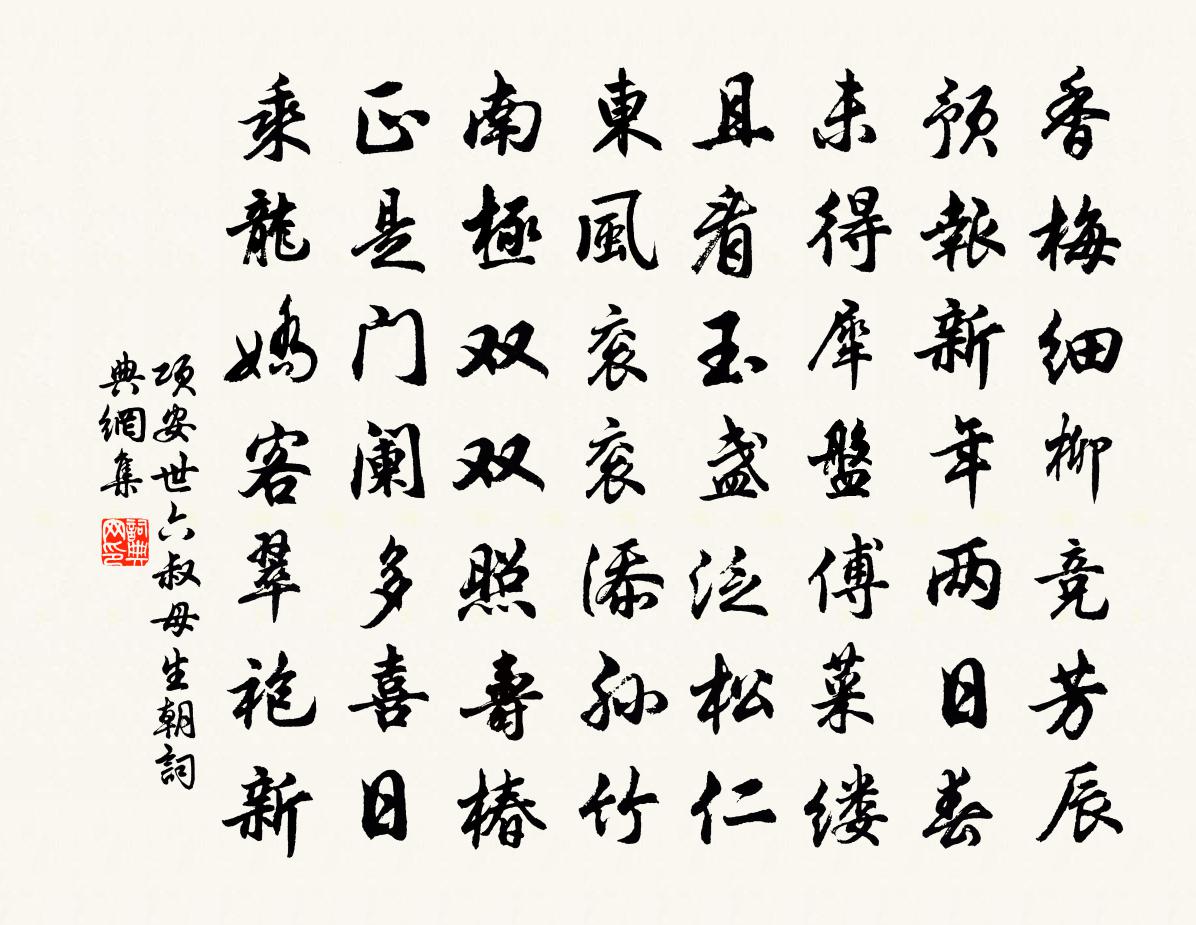 香梅细柳竞芳辰
预報新年两日春
未得犀盤傅菜缕
且看玉盏泛松仁
東風衮衮添孙竹
南極双双照壽椿
正是门阑多喜日
乘龍娇客翠袍新
项安世六叔母生朝詞
典網集
詞典网印